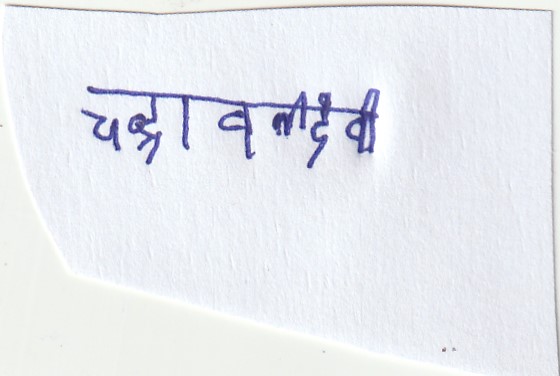 चन्द्रावती देवी